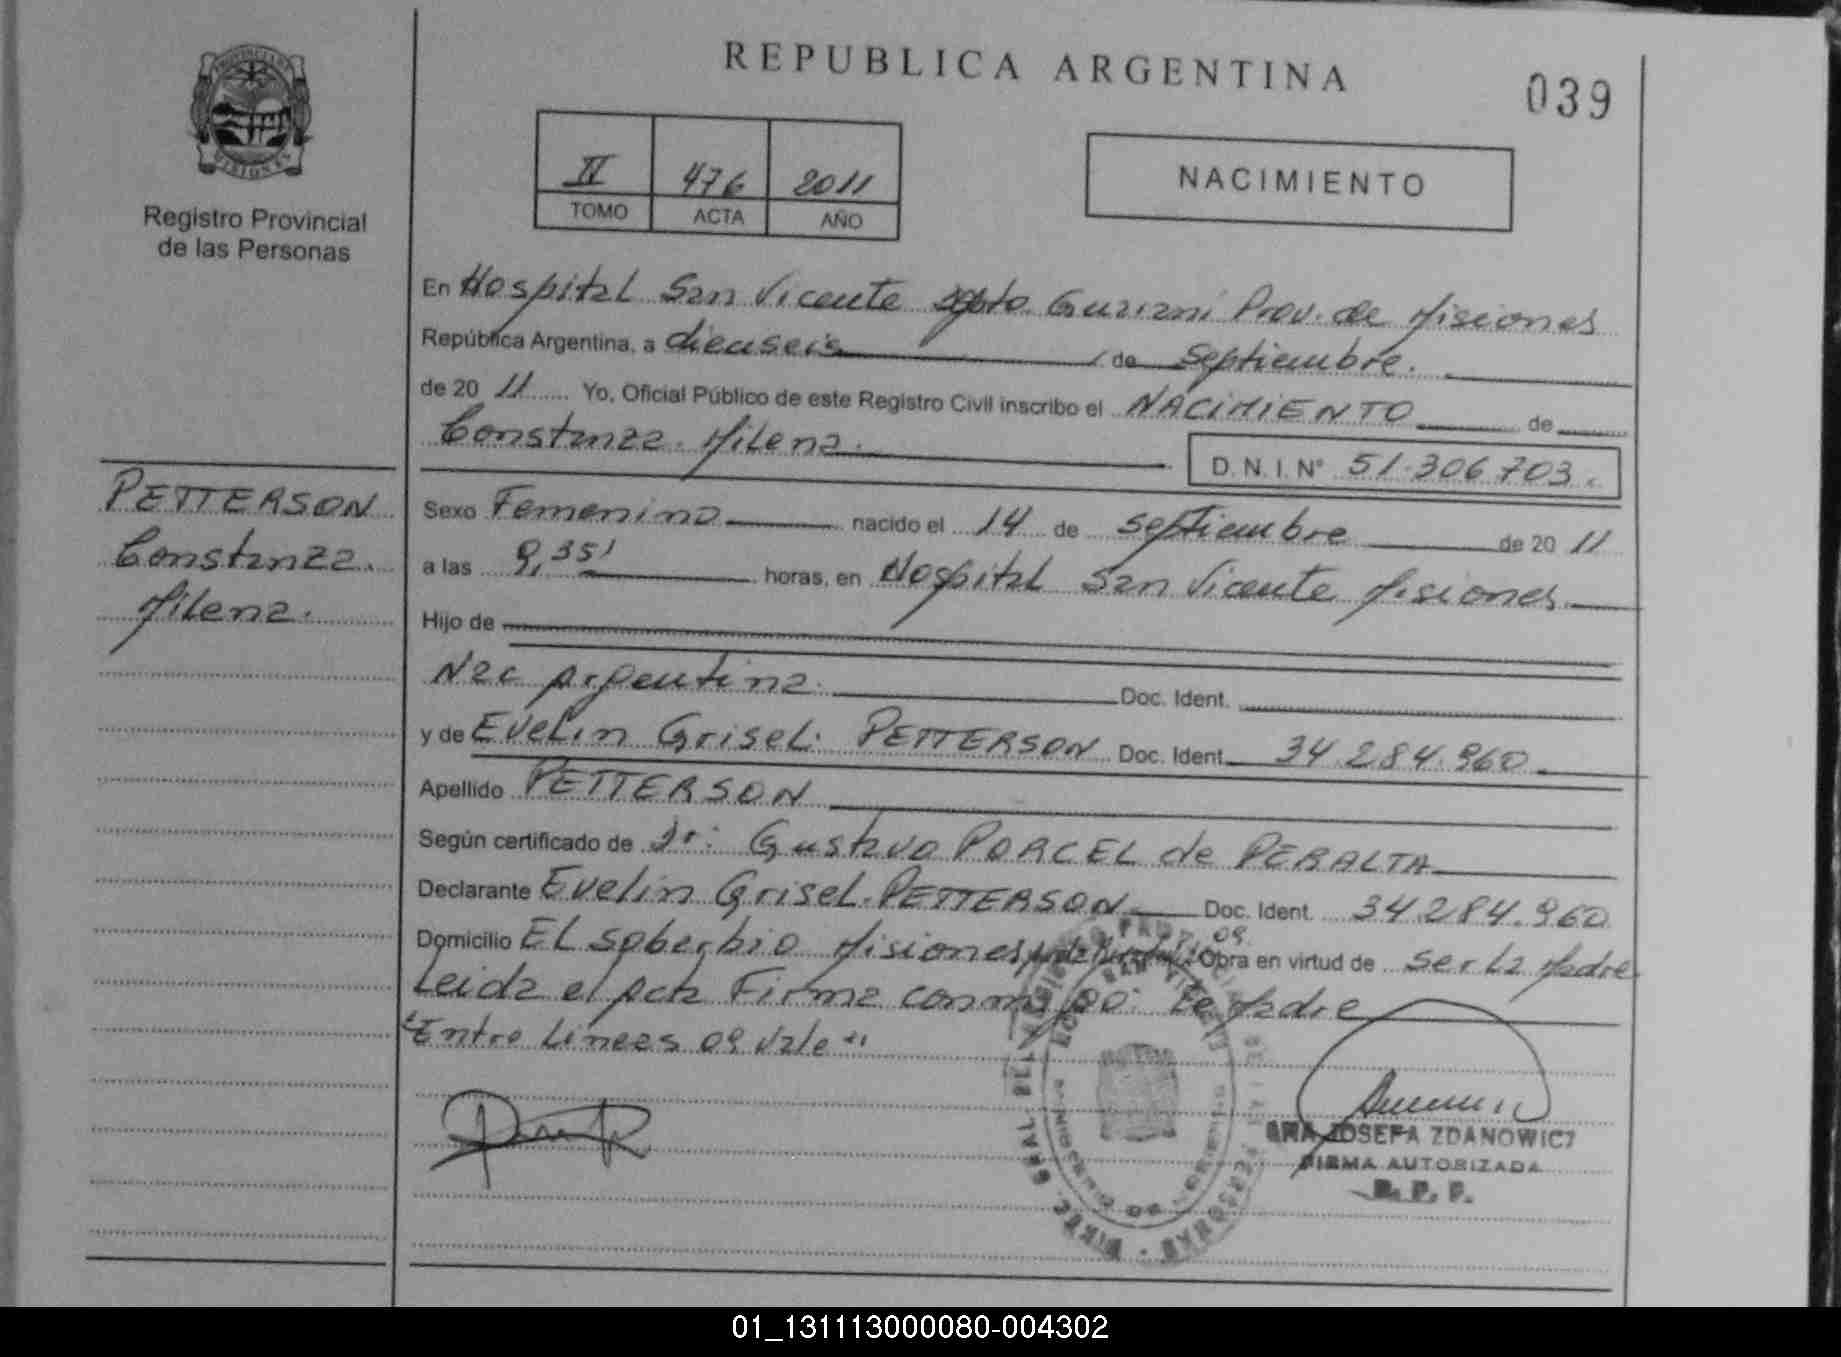 REPUBLICA ARGENTINA
039
PROVINCIA DE MISIONES
Registro Provincial
de las Personas
II 476 2011
TOMO ACTA AÑO
NACIMIENTO
En Hospital San Vicente Dpto Guarani Prov. de Misiones
República Argentina, a dieciseis de Septiembre.
de 20 11 Yo, Oficial Público de este Registro Civil inscribo el NACIMIENTO de
Constanza Milena.
D.N.I. N° 51.306.703.
PETTERSON
Constanza.
Milena.
Sexo Femenino nacido el 14 de septiembre de 20 11
a las 9,35' horas, en Hospital San Vicente Misiones
Hijo de
Nac Argentina. Doc. Ident.
y de Evelin Grisel. PETTERSON Doc. Ident. 34.284.960
Apellido PETTERSON
Según certificado de Dr: Gustavo PORCEL de PERALTA
Declarante Evelin Grisel. PETTERSON Doc. Ident. 34.284.960
09.
Domicilio EL soberbio Misiones Obra en virtud de ser La Madre
Leida el Acta Firma conmigo: La Madre
"Entre Lineas 09 Vale"
ANA JOSEFA ZDANOWICZ
FIRMA AUTORIZADA
R. P. P.
01_131113000080-004302